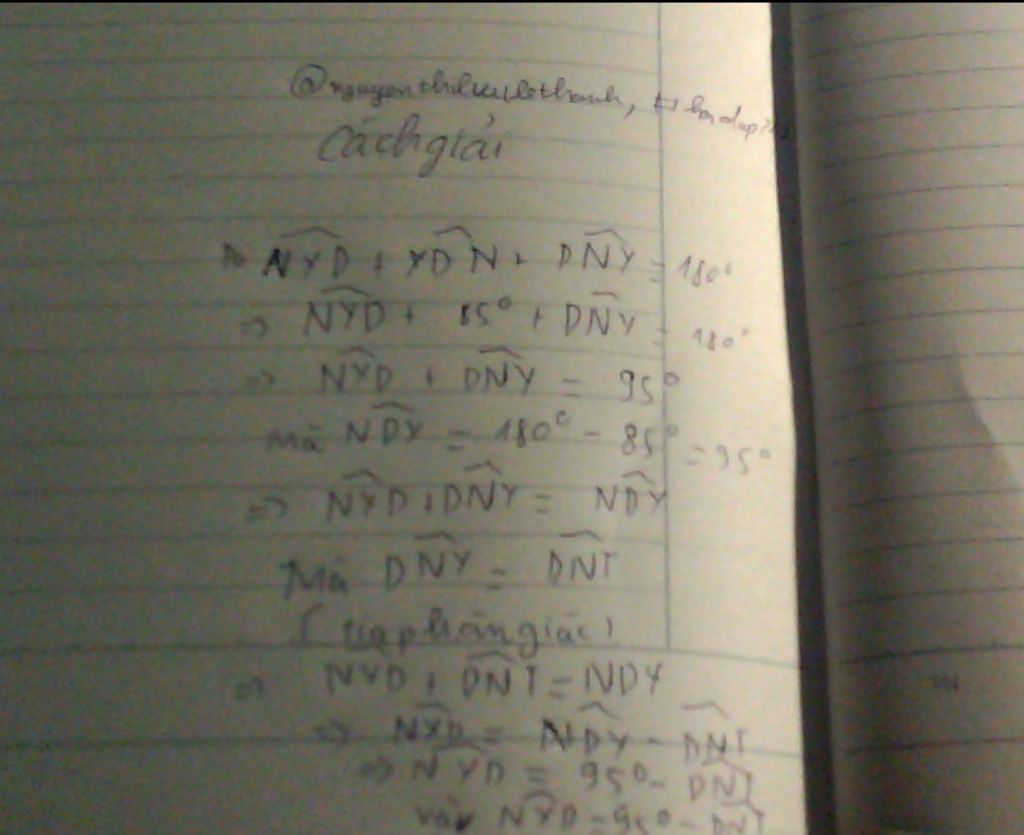 Cách giải
NYD + YDN + DNY = 180°
=> NYD + 85° + DNY = 180°
=> NYD + DNY = 95°
Mà NDY = 180° - 85° = 95°
=> NYD + DNY = NDY
Mà DNY = DNT
(tia phân giác)
=> NYD + DNT = NDY
=> NYD = NDY - DNT
=> NYD = 95° - DNT
vậy NYD = 95° - DNT